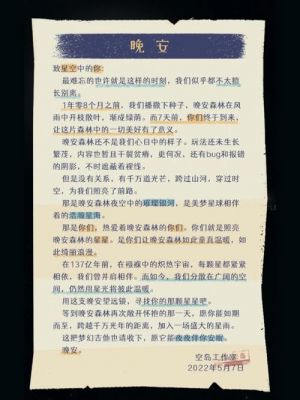 晚安
致星空中的你:
最难忘的也许就是这样的时刻，我们似乎都不太擅
长别离。
1年零8个月之前，我们播撒下种子，晚安森林在风
雨中开枝散叶，渐成绿荫。而7天前，你们终于到来，
让这片森林中的一切美好有了意义。
晚安森林还不是我们心目中的样子。玩法还未生长
繁茂，内容也暂且干瘪贫瘠，更何况，还有bug和报错
的阴影，不时遮蔽着视线。
但是没有关系，有千万道光芒，跨过山河，穿过时
空，为我们照亮了前路。
那是晚安森林夜空中的璀璨银河，是美梦星球相伴
着的浩瀚星海。
那是你们，热爱着晚安森林的你们。你们就是照亮
晚安森林的星星。是你们让晚安森林如此童真温暖，如
此绮丽浪漫。
在137亿年前，在襁褓中的炽热宇宙，每颗星都紧紧
相依，我们曾并肩相伴。而如今，我们分散在广阔的空
间，仍然用星光将彼此温暖。
用这支晚安望远镜，寻找你的那颗星星吧。
等到晚安森林再次敞开怀抱的那一天，愿你能如期
而至，跨越千万光年的距离，加入一场盛大的星雨。
这把梦幻吉他也请收下，愿它能夜夜伴你安眠。
晚安。
空岛工作室
2022年5月7日